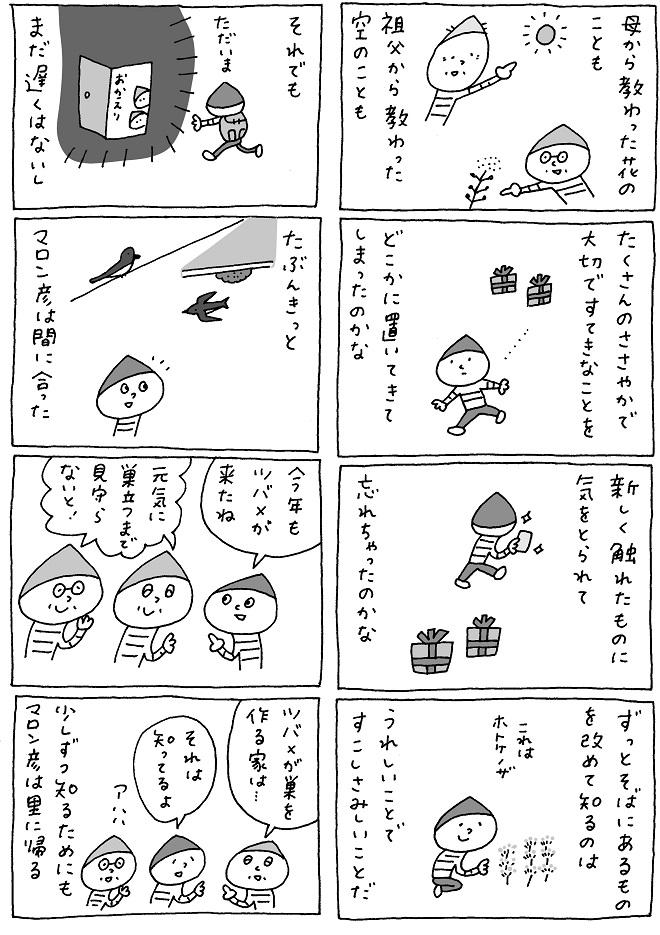 母から教わった花の
ことも
祖父から教わった
空のことも
たくさんのささやかで
大切ですてきなことを
どこかに置いてきて
しまったのかな
新しく触れたものに
気をとられて
忘れちゃったのかな
ずっとそばにあるもの
を改めて知るのは
これは
ホトケノザ
うれしいことで
すこしさみしいことだ
それでも
ただいま
おかえり
まだ遅くはないし
たぶんきっと
マロン彦は間に合った
今年も
ツバメが
来たね
元気に
巣立つまで
見守ら
ないと!
ツバメが巣を
作る家は…
それは
知ってるよ
アハハ
少しずつ知るためにも
マロン彦は里に帰る